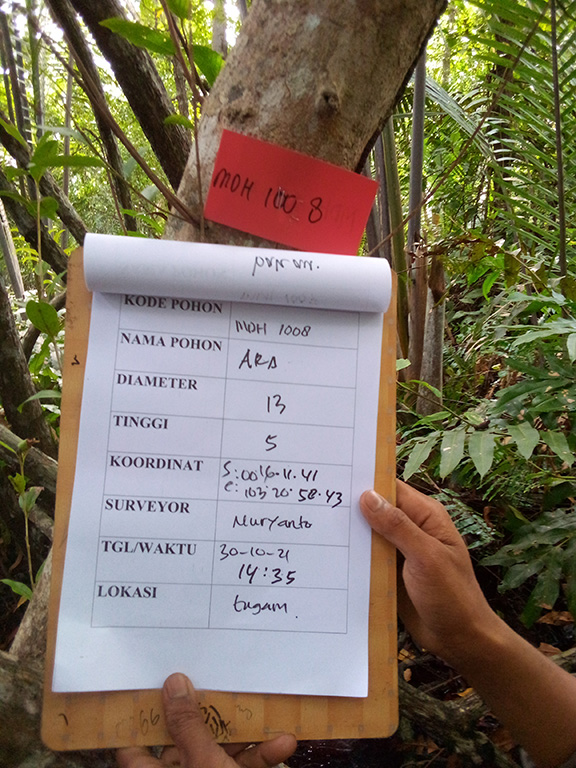 MDH 1008
pohon.
KODE POHON MDH 1008
NAMA POHON ARA
DIAMETER 13
TINGGI 5
KOORDINAT S: 00 16.11.41
E: 103.20.58.43
SURVEYOR Nuryanto
TGL/WAKTU 30-10-21
14:35
LOKASI tugam.